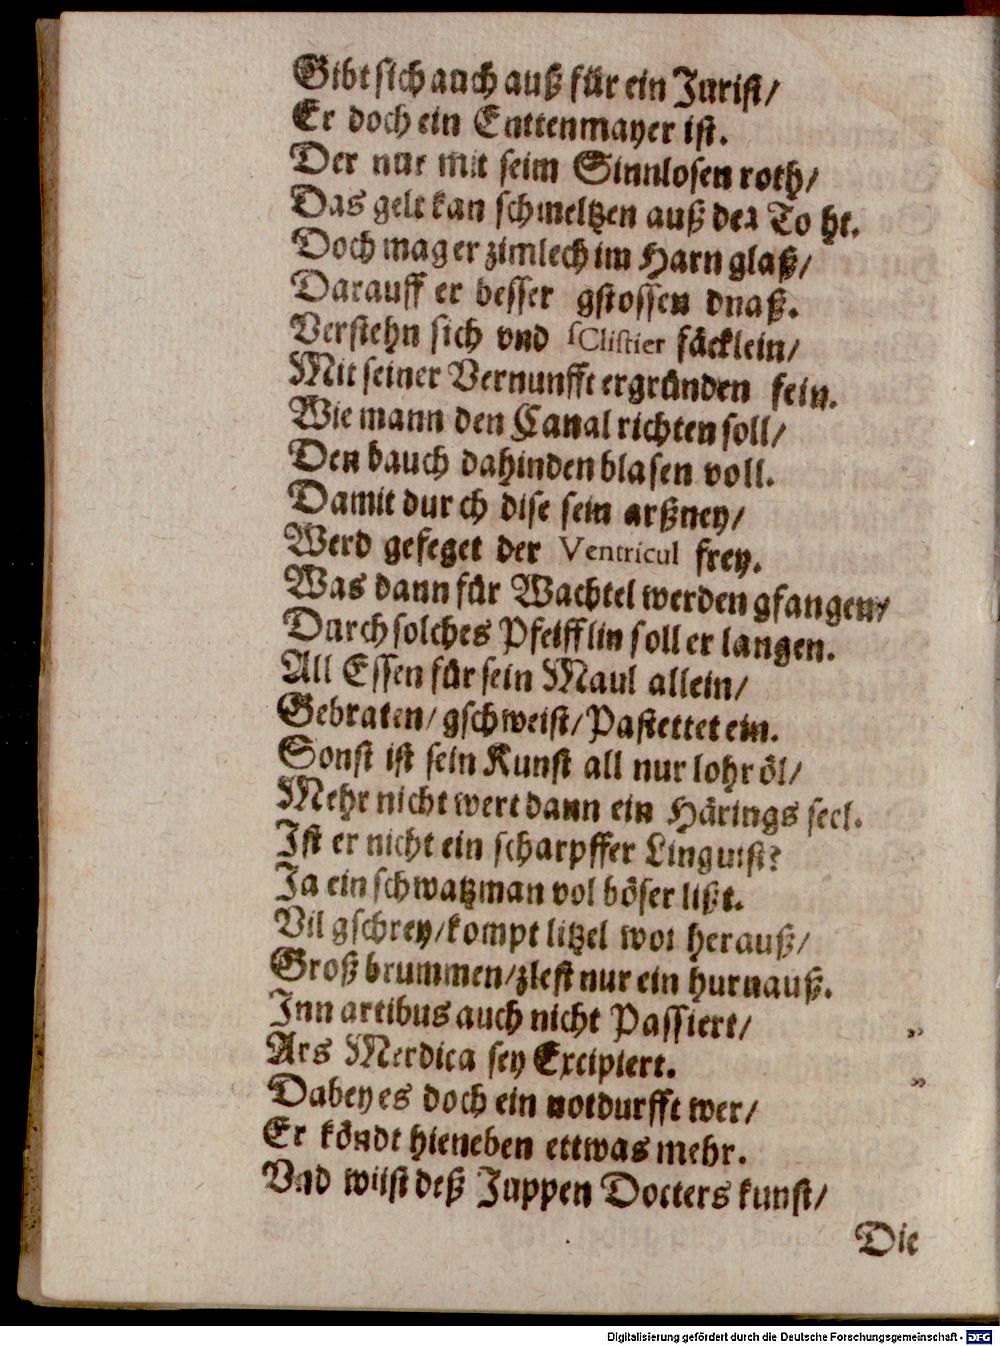 Gibt sich auch auß für ein Jurist/
Er doch ein Cuttenmayer ist.
Der nur mit seim Sinnlosen roth/
Das gelt kan schmeltzen auß der To ht.
Doch mag er zimlech im Harn glaß/
Darauff er besser gstossen dnaß.
Verstehn sich vnd sClistier fäcklein/
Mit seiner Vernunfft ergründen fein.
Wie mann den Canal richten soll/
Den bauch dahinden blasen voll.
Damit dur ch dise sein artzney/
Werd gefeget der Ventricul frey.
Was dann für Wachtel werden gfangen/
Durch solches Pfeifflin soll er langen.
All Essen für sein Maul allein/
Gebraten/ gschweist/ Pastettet ein.
Sonst ist sein Kunst all nur lohr öl/
Mehr nicht wert dann ein Härings seel.
Ist er nicht ein scharpffer Linguist?
Ja ein schwatzman vol böser lißt.
Vil gschrey/ kompt litzel wol herauß/
Groß brummen/ zlest nur ein hurnauß.
Inn artibus auch nicht Passiert/
Ars Merdica sey Excipiert.
Dabey es doch ein notdurfft wer/
Er köndt hieneben ettwas mehr.
Vnd wüst deß Juppen Docters kunst/
Die
Digitalisierung gefördert durch die Deutsche Forschungsgemeinschaft - DFG